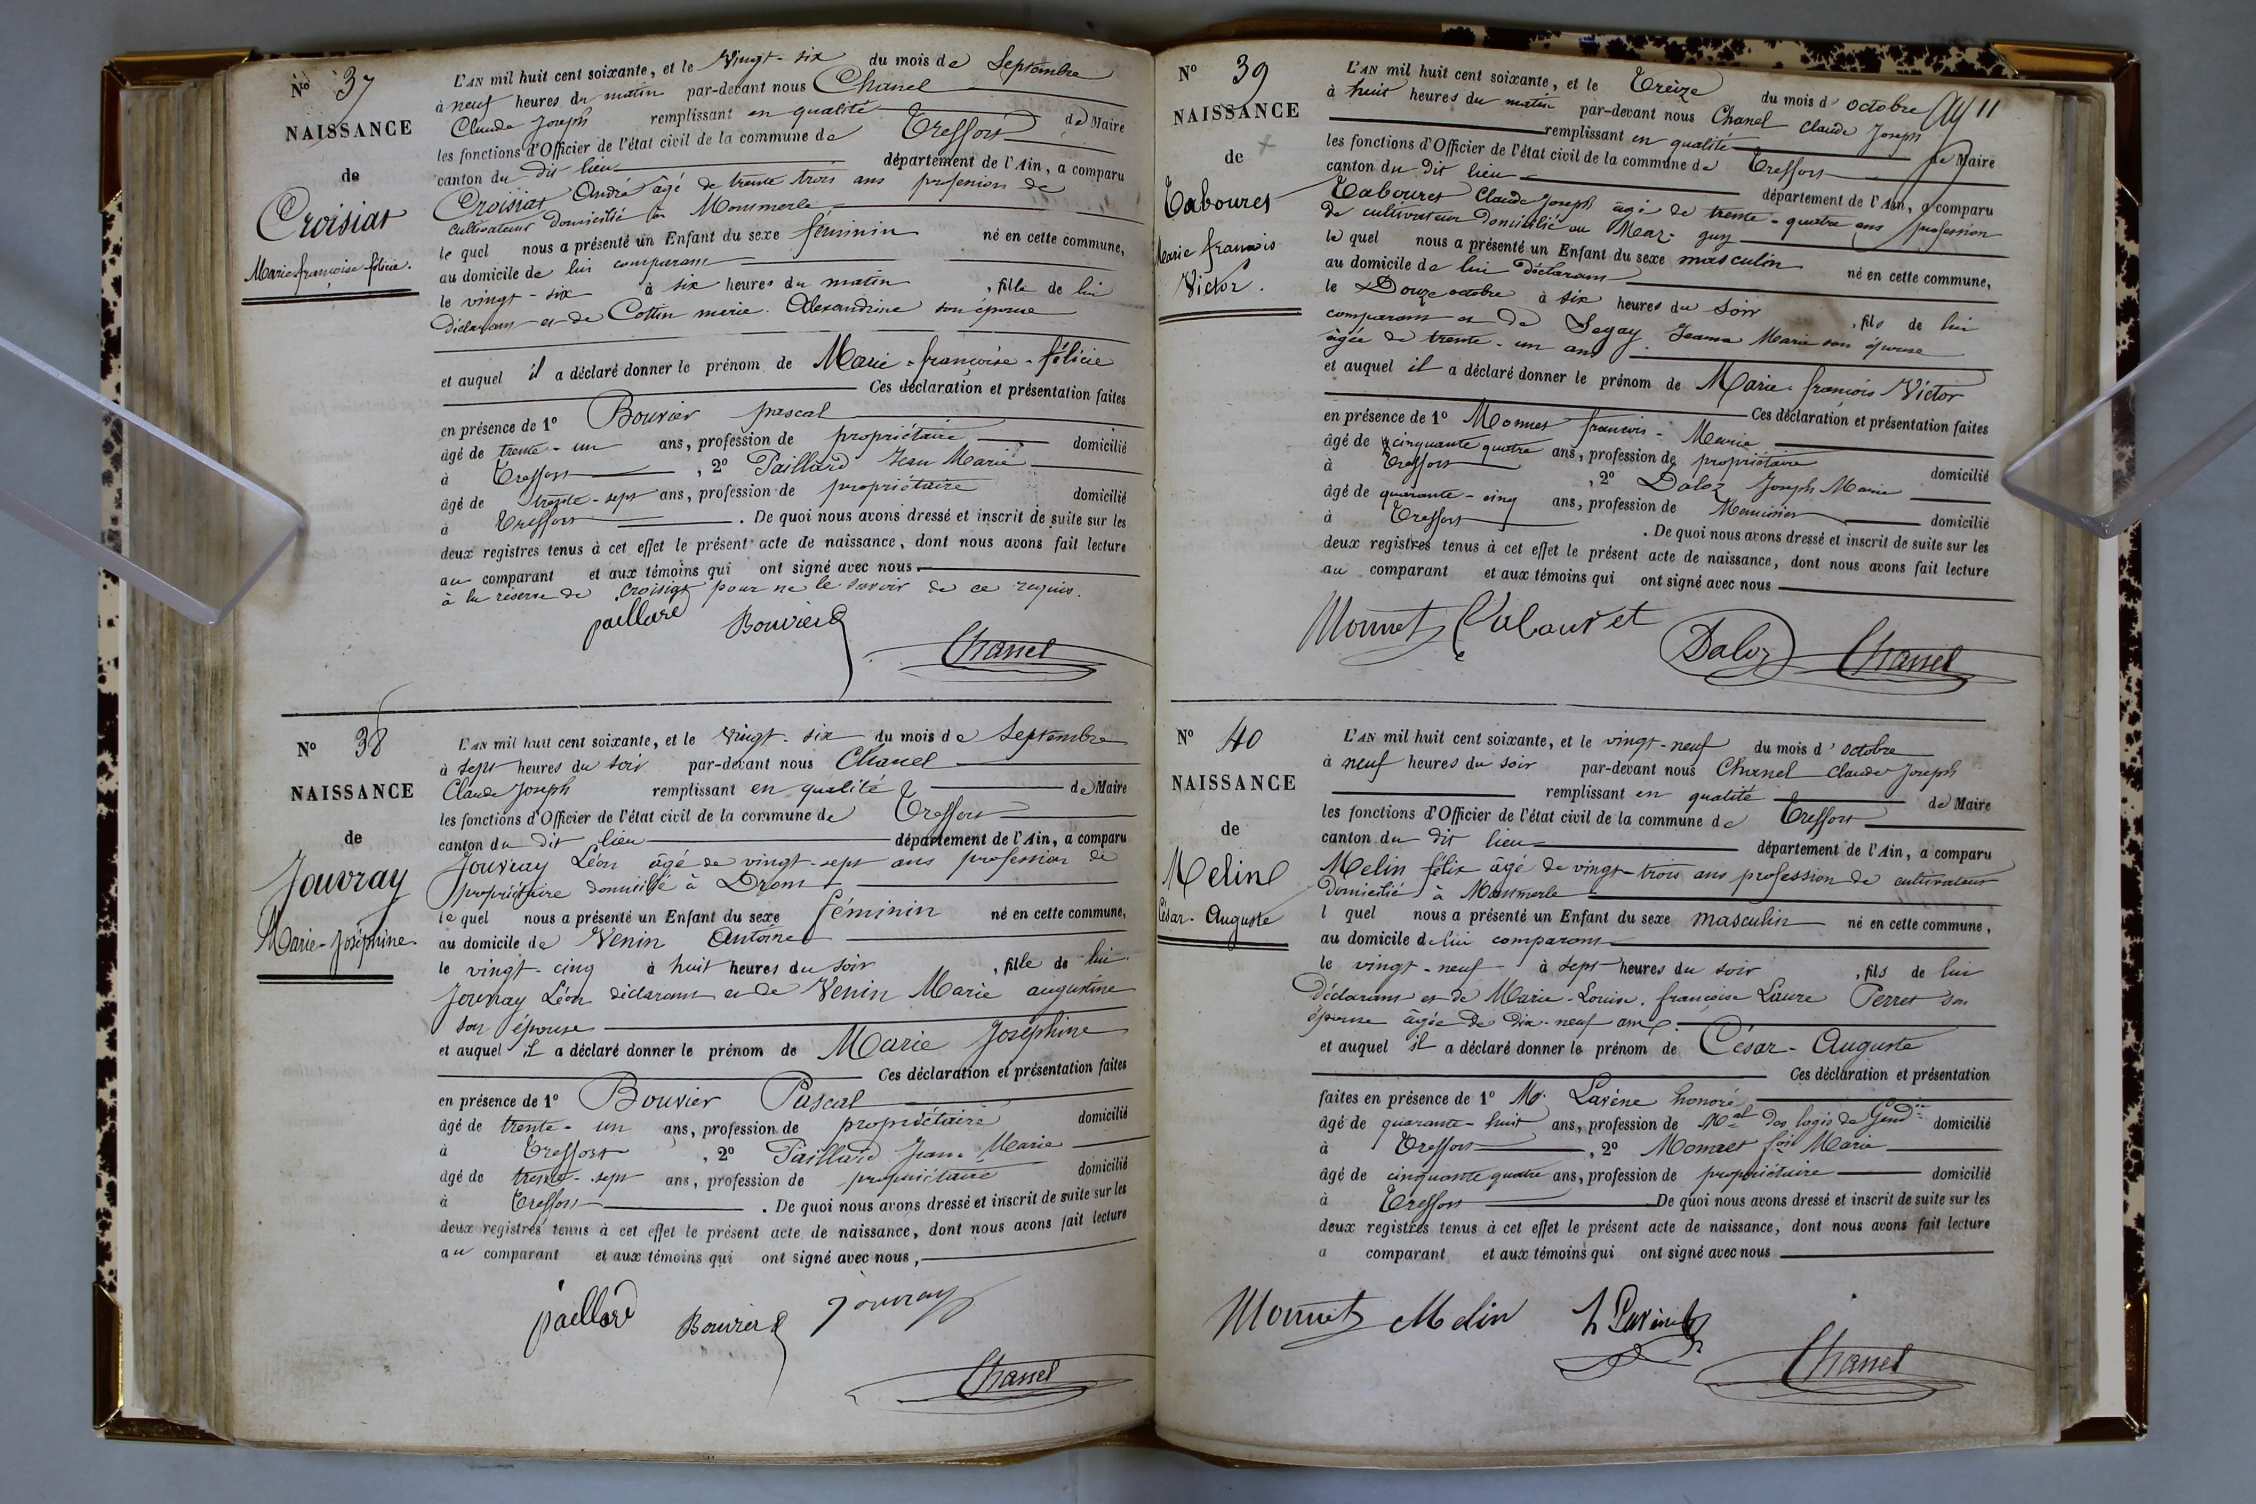 No 37
NAISSANCE
de
Croisiat
Marie françoise félicie.
L'AN mil huit cent soixante, et le Vingt-six du mois de Septembre
à neuf heures du matin par-devant nous Chanel
Claude Joseph remplissant en qualité de Maire
les fonctions d'Officier de l'état civil de la commune de Treffort
canton du dit lieu département de l'Ain, a comparu
Croisiat André âgé de trente trois ans profession de
cultivateur domicilié à Mommerle
le quel nous a présenté un Enfant du sexe féminin né en cette commune,
au domicile de lui comparant
le vingt-six à six heures du matin, fille de lui
déclarant et de Cottin marie Alexandrine son épouse
et auquel il a déclaré donner le prénom de Marie-françoise-félicie
Ces déclaration et présentation faites
en présence de 1º Bouvier pascal
âgé de trente-un ans, profession de propriétaire domicilié
à Treffort, 2º Paillard Jean Marie
âgé de trente-sept ans, profession de propriétaire domicilié
à Treffort. De quoi nous avons dressé et inscrit de suite sur les
deux registres tenus à cet effet le présent acte de naissance, dont nous avons fait lecture
au comparant et aux témoins qui ont signé avec nous
à la réserve de Croisiat pour ne le savoir de ce requis.
paillard Bouvier
Chanel
No 38
NAISSANCE
de
Jouvray
Marie-Joséphine.
L'AN mil huit cent soixante, et le Vingt-six du mois de Septembre
à sept heures du soir par-devant nous Chanel
Claude Joseph remplissant en qualité de Maire
les fonctions d'Officier de l'état civil de la commune de Treffort
canton du dit lieu département de l'Ain, a comparu
Jouvray Léon âgé de vingt-sept ans profession de
propriétaire domicilié à Drom
le quel nous a présenté un Enfant du sexe féminin né en cette commune,
au domicile de Venin Antoine
le vingt-cinq à huit heures du soir, fille de lui
Jouvray Léon déclarant et de Venin Marie augustine
son épouse
et auquel il a déclaré donner le prénom de Marie Joséphine
Ces déclaration et présentation faites
en présence de 1º Bouvier Pascal
âgé de trente-un ans, profession de propriétaire domicilié
à Treffort, 2º Paillard Jean Marie
âgé de trente-sept ans, profession de propriétaire domicilié
à Treffort. De quoi nous avons dressé et inscrit de suite sur les
deux registres tenus à cet effet le présent acte de naissance, dont nous avons fait lecture
au comparant et aux témoins qui ont signé avec nous,
paillard Bouvier Jouvray
Chanel
11
No 39
NAISSANCE
de
Tabouret
Marie françois
Victor.
L'AN mil huit cent soixante, et le Treize du mois d'octobre
à huit heures du matin par-devant nous Chanel Claude Joseph
remplissant en qualité de Maire
les fonctions d'Officier de l'état civil de la commune de Treffort
canton du dit lieu département de l'Ain, a comparu
Tabouret Claude Joseph âgé de trente-quatre ans profession
de cultivateur domicilié au Mas-guy
le quel nous a présenté un Enfant du sexe masculin né en cette commune,
au domicile de lui déclarant
le Douze octobre à six heures du soir, fils de lui
comparant et de Segay Jeanne Marie son épouse
âgée de trente-un ans
et auquel il a déclaré donner le prénom de Marie-françois Victor
Ces déclaration et présentation faites
en présence de 1º Monnet francois-Marie
âgé de cinquante quatre ans, profession de propriétaire domicilié
à Treffort, 2º Daloz Joseph Marie
âgé de quarante-cinq ans, profession de Menuisier domicilié
à Treffort. De quoi nous avons dressé et inscrit de suite sur les
deux registres tenus à cet effet le présent acte de naissance, dont nous avons fait lecture
au comparant et aux témoins qui ont signé avec nous
Monnet Tabouret Daloz Chanel
No 40
NAISSANCE
de
Melin
César-Auguste
L'AN mil huit cent soixante, et le vingt-neuf du mois d'octobre
à neuf heures du soir par-devant nous Chanel Claude Joseph
remplissant en qualité de Maire
les fonctions d'Officier de l'état civil de la commune de Treffort
canton du dit lieu département de l'Ain, a comparu
Melin félix âgé de vingt-trois ans profession de cultivateur
domicilié à Mommerle
l quel nous a présenté un Enfant du sexe masculin né en cette commune,
au domicile de lui comparant
le vingt-neuf à sept heures du soir, fils de lui
Déclarant et de Marie-Louise-françoise Laure Perret son
épouse âgée de dix-neuf ans.
et auquel il a déclaré donner le prénom de César-Auguste
Ces déclaration et présentation
faites en présence de 1º Mr. Lavène honoré
âgé de quarante-huit ans, profession de Mal des logis de Gendie domicilié
à Treffort, 2º Monnet fois Marie
âgé de cinquante quatre ans, profession de propriétaire domicilié
à Treffort De quoi nous avons dressé et inscrit de suite sur les
deux registres tenus à cet effet le présent acte de naissance, dont nous avons fait lecture
a comparant et aux témoins qui ont signé avec nous
Monnet Melin
Chanel